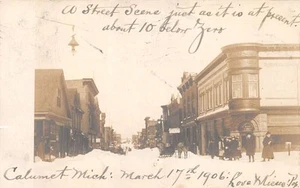 A Street Scene just as it is at present.
about 10 below Zero
Calumet Mich: March 17th 1906.